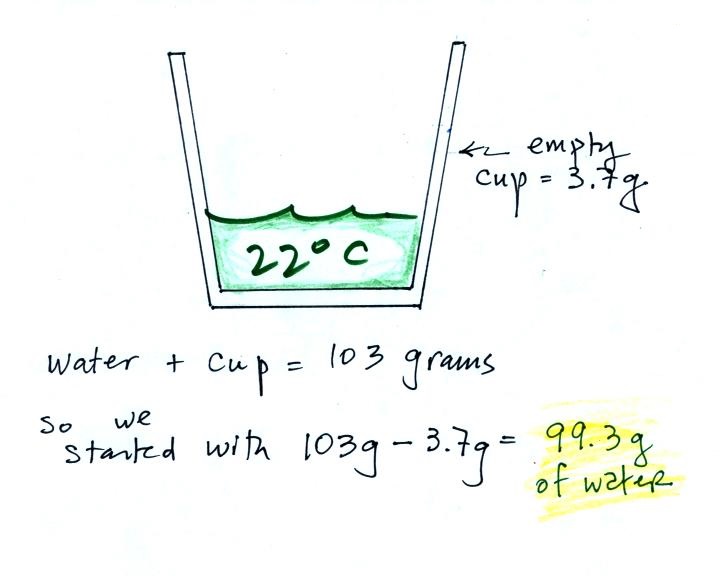 ← empty
cup = 3.7g
22° C
water + cup = 103 grams
so we
started with 103g - 3.7g = 99.3g
of water